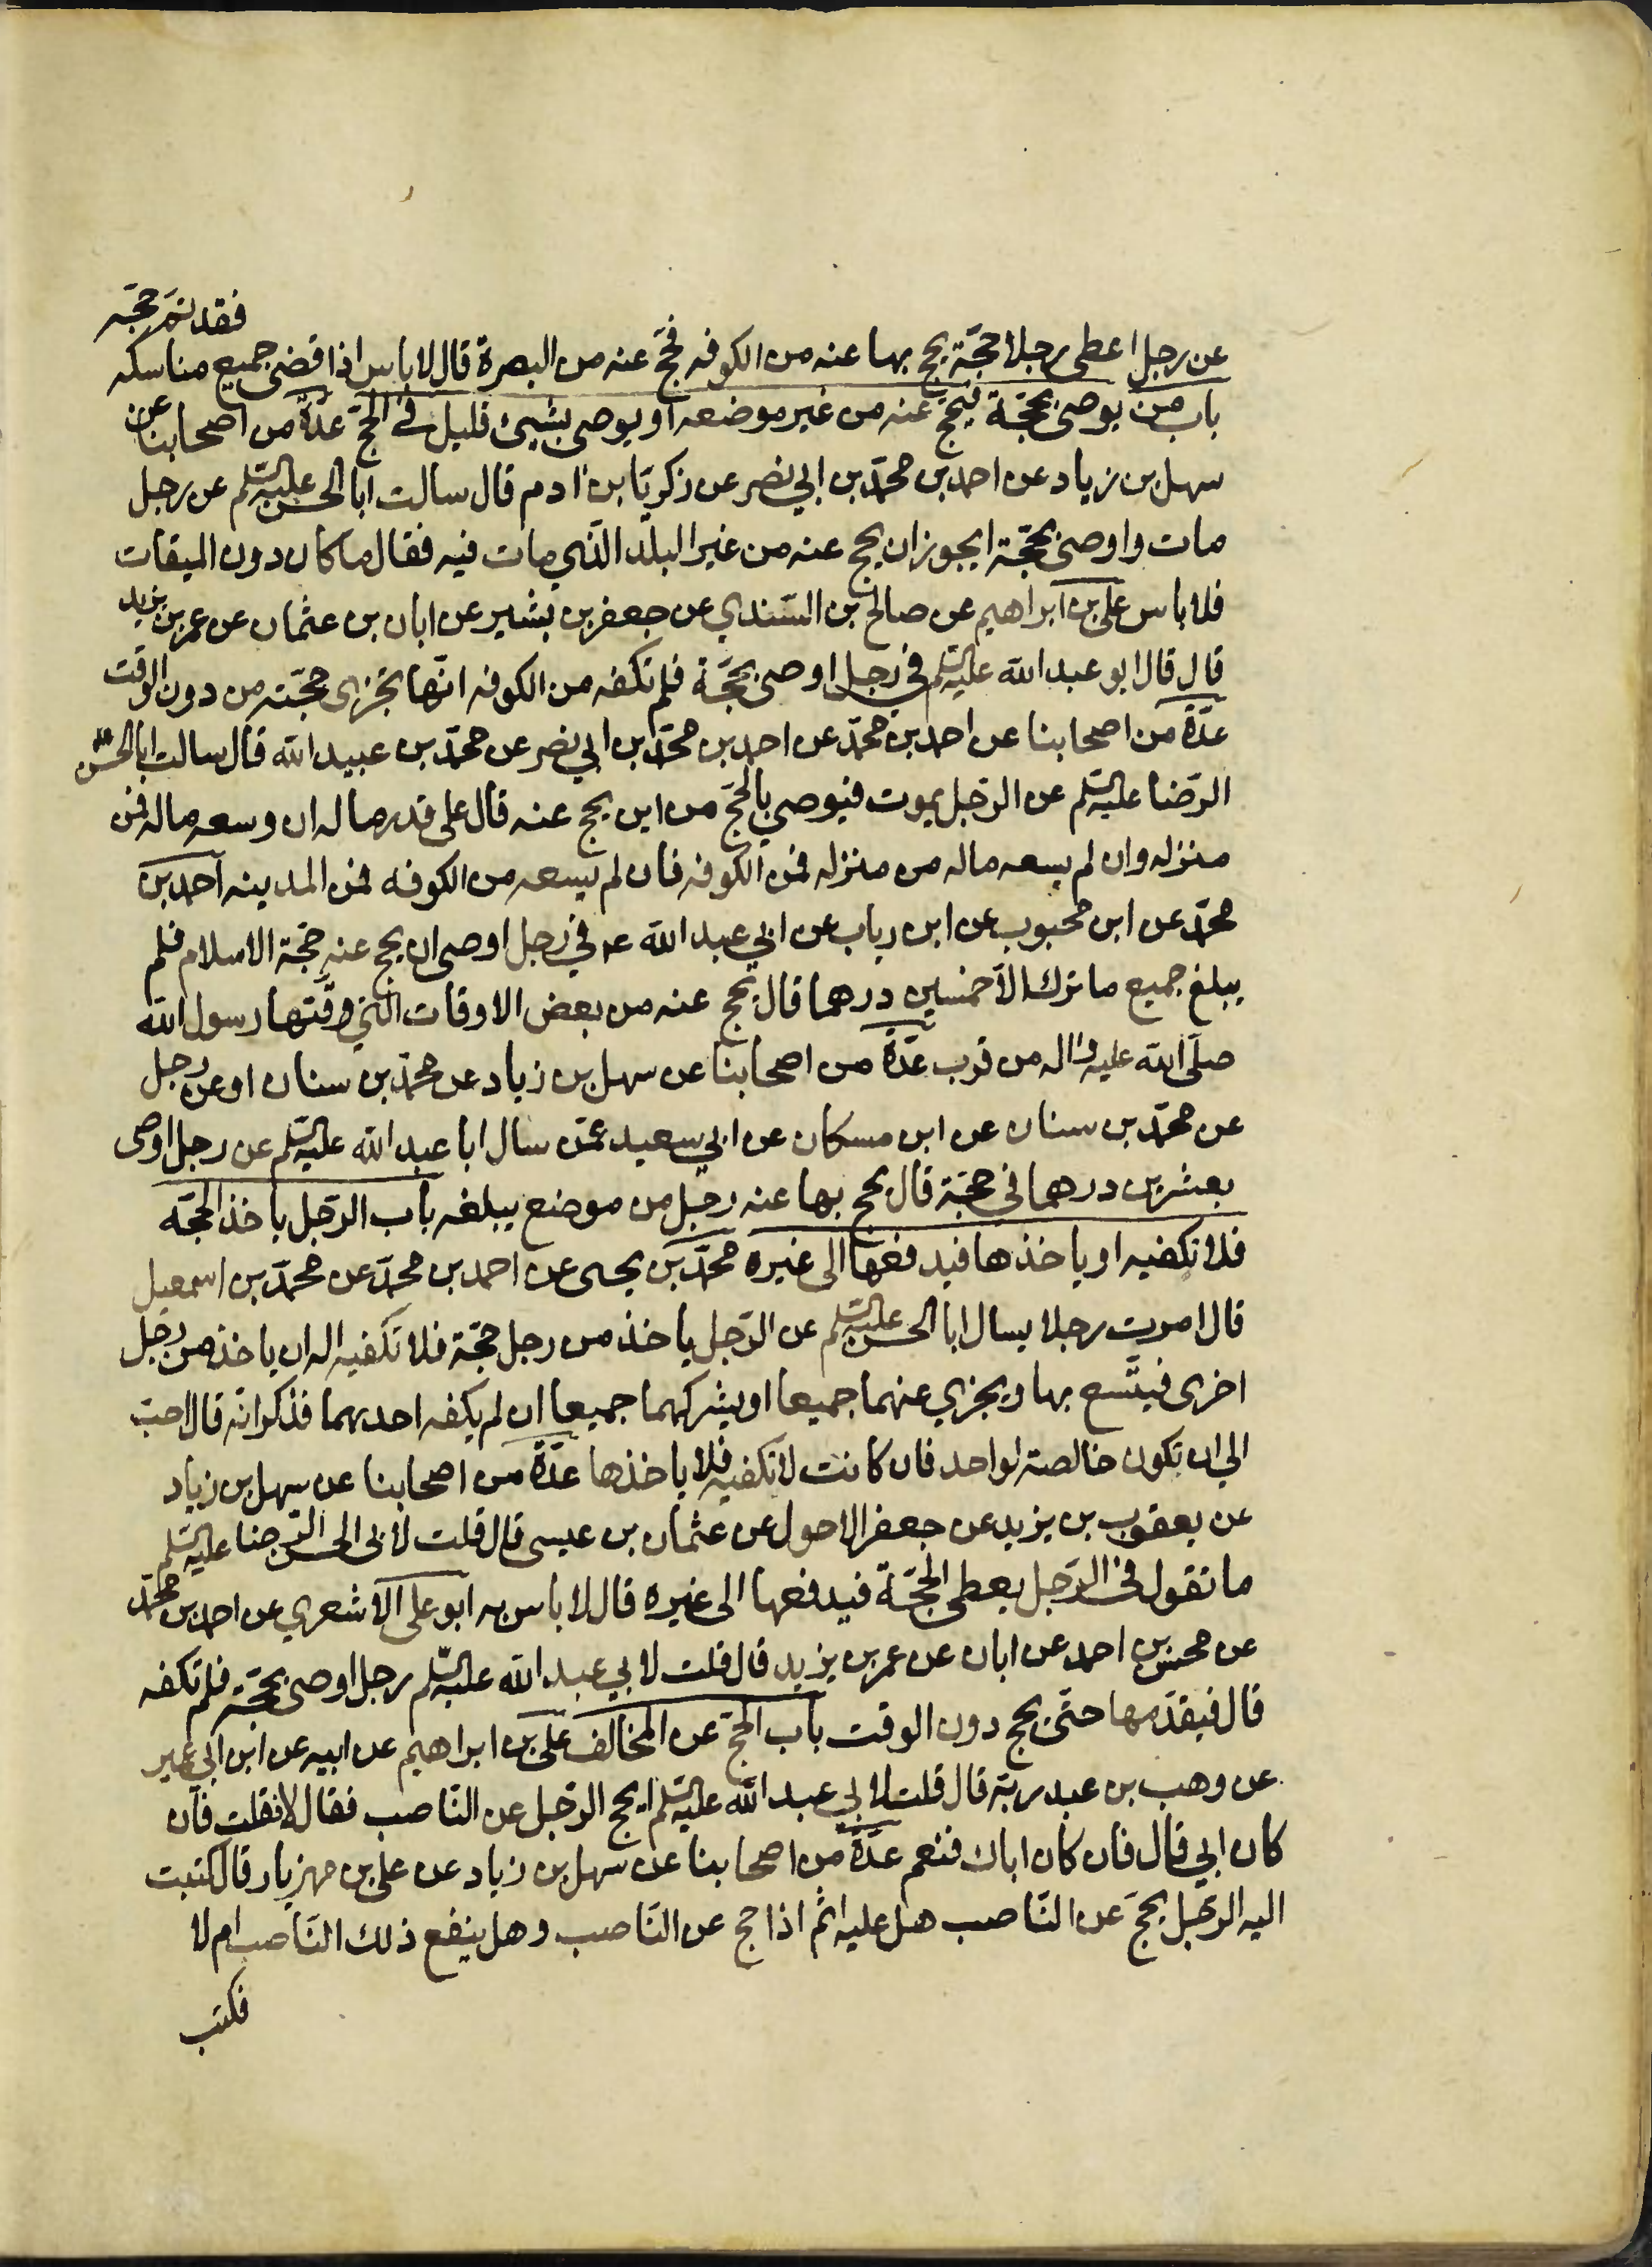 عن رجل اعطى رجلا حجّة يحج بها عنه من الكوفه فحجّ عنه من البصرة قال لا باس اذا قضى جميع مناسكه فقد تمّ حجّه
باب من يوصى بحجّة فيحجّ عنه من غير موضعه او يوصى بشيئ قليل في الحجّ عدّة من اصحابنا عن
سهل بن زياد عن احمد بن محمّد بن ابي نصر عن زكريّا بن ادم قال سالت ابا الحسن عليه السّلم عن رجل
مات واوصى بحجّة ايجوز ان يحج عنه من غير البلد الذّي مات فيه فقال ما كان دون الميقات
فلا باس علي بن ابراهيم عن صالح بن السّندي عن جعفر بن بشير عن ابان بن عثمان عن عمر بن يزيد
قال قال ابو عبد الله عليه السّلم في رجل اوصى بحجّة فلم تكفه من الكوفه انّها تجزى حجّته من دون الوقت
عدّة من اصحابنا عن احمد بن محمّد عن احمد بن محمّد بن ابي نصر عن محمّد بن عبيد الله قال سالت ابا الحسن
الرّضا عليه السّلم عن الرّجل يموت فيوصي بالحجّ من اين يحج عنه قال على قدر ماله ان وسعه ماله فمن
منزله وان لم يسعه ماله من منزله فمن الكوفه فان لم يسعه من الكوفه فمن المدينه احمد بن
محمّد عن ابن محبوب عن ابن رياب عن ابي عبد الله ع في رجل اوصى ان يحج عنه حجّة الاسلام فلم
يبلغ جميع ما ترك الّا خمسين درهما قال يحج عنه من بعض الاوقات التّي وقّتها رسول الله
صلّى الله عليه واله من قرب عدّة من اصحابنا عن سهل بن زياد عن محمّد بن سنان او عن رجل
عن محمّد بن سنان عن ابن مسكان عن ابي سعيد عمّن سال ابا عبد الله عليه السّلم عن رجل اوصى
بعشرين درهما في حجّة قال يحج بها عنه رجل من موضع يبلغه باب الرّجل ياخذ الحجّه
فلا تكفيه او ياخذها فيدفعها الى غيره محمّد بن يحيى عن احمد بن محمّد عن محمّد بن اسمعيل
قال امرت رجلا يسال ابا الحسن عليه السّلم عن الرّجل ياخذ من رجل حجّة فلا تكفيه اله ان ياخذ من رجل
اخرى فيتّسع بها ويجزي عنهما جميعا او يشركهما جميعا ان لم يكفه احديهما فذكر انّه قال احبّ
الي ان تكون خالصة لواحد فان كانت لا تكفيه فلا ياخذها عدّة من اصحابنا عن سهل بن زياد
عن يعقوب بن يزيد عن جعفر الاحول عن عثمان بن عيسى قال قلت لابى الحسن الرّضا عليه السّلم
ما تقول في الرّجل يعطى الحجّة فيدفعها الى غيره قال لا باس به ابو علي الاشعري عن احمد بن محمّد
عن محسن بن احمد عن ابان عن عمر بن يزيد قال قلت لابي عبد الله عليه السّلم رجل اوصى بحجّة فلم تكفه
قال فيقدّمها حتّى يحج دون الوقت باب الحجّ عن المخالف علي بن ابراهيم عن ابيه عن ابن ابي عمير
عن وهب بن عبد ربّه قال قلت لابي عبد الله عليه السّلم ايحج الرّجل عن النّاصب فقال لا فقلت فان
كان ابي قال فان كان اباك فنعم عدّة من اصحابنا عن سهل بن زياد عن علي بن مهزيار قال كتبت
اليه الرّجل يحجّ عن النّاصب هل عليه اثم اذا حج عن النّاصب وهل ينفع ذلك النّاصب ام لا
فكتب